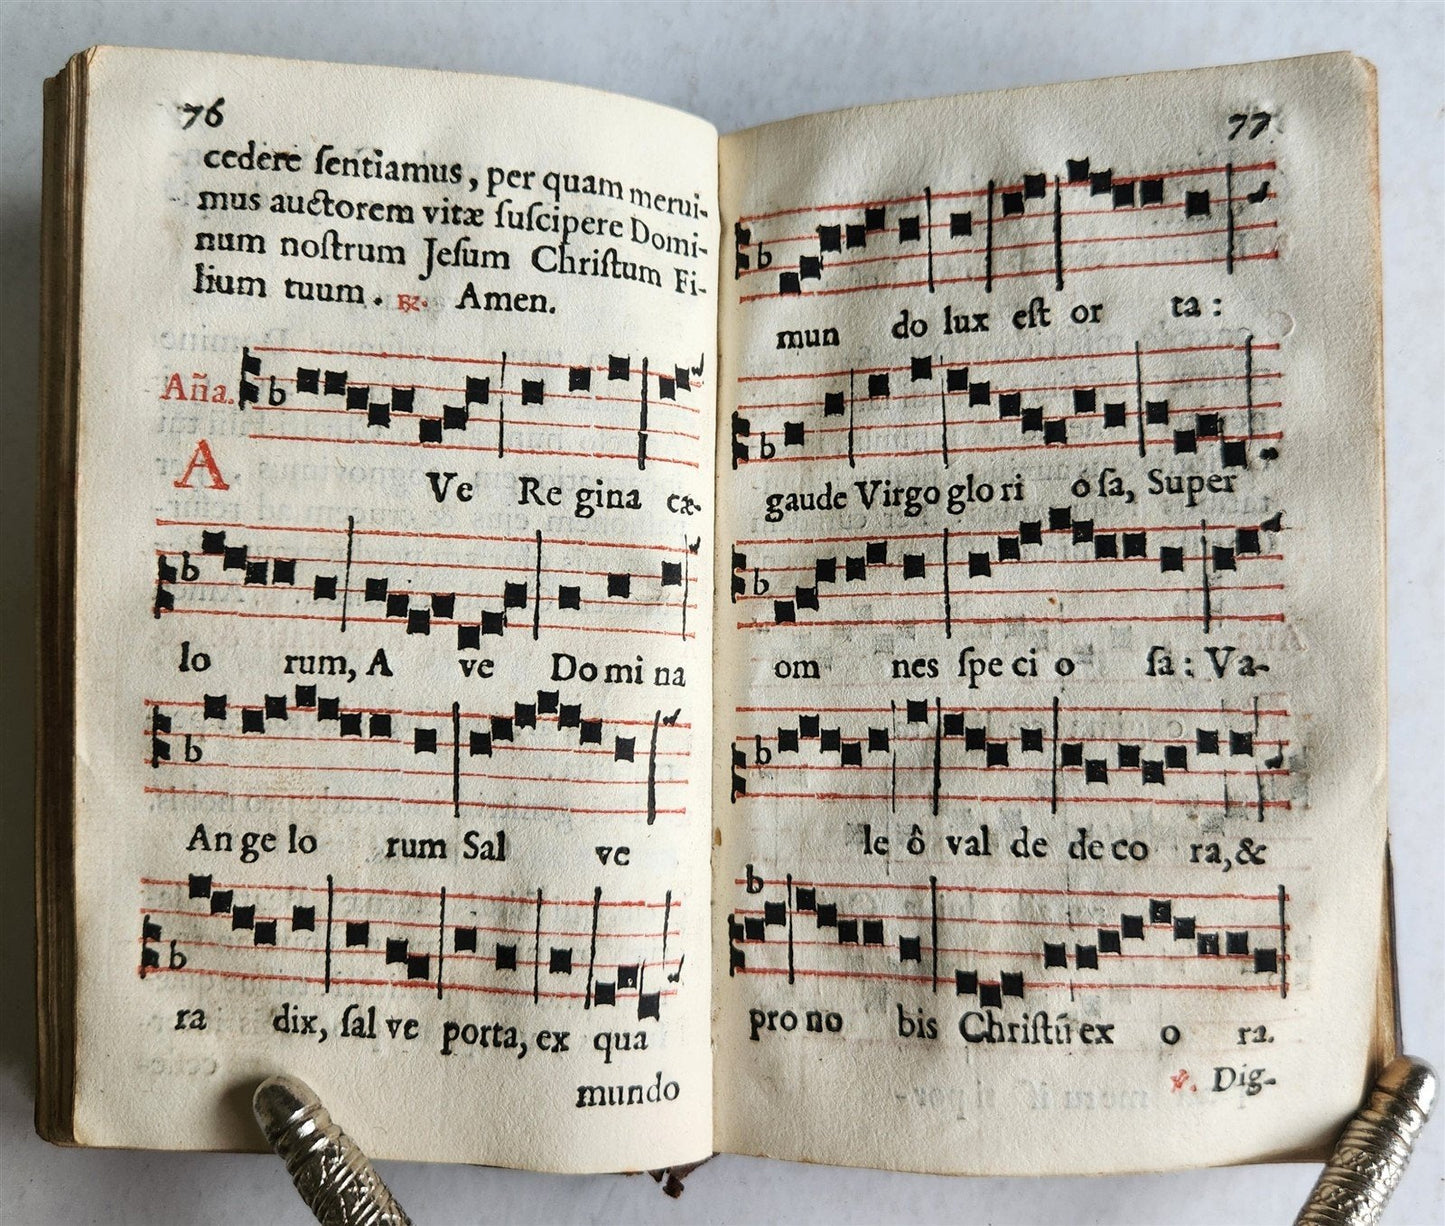 76
cedere ſentiamus, per quam merui-
mus auctorem vitæ ſuſcipere Domi-
num noſtrum Jeſum Chriſtum Fi-
lium tuum. ℞. Amen.
Aña.
A Ve Re gina cæ-
lo rum, A ve Do mi na
An ge lo rum Sal ve
ra dix, ſal ve porta, ex qua
mundo
77
mun do lux eſt or ta:
gaude Virgo glo ri o ſa, Super
om nes ſpe ci o ſa: Va-
le ô val de de co ra, &
pro no bis Chriſtū ex o ra.
℣. Dig-